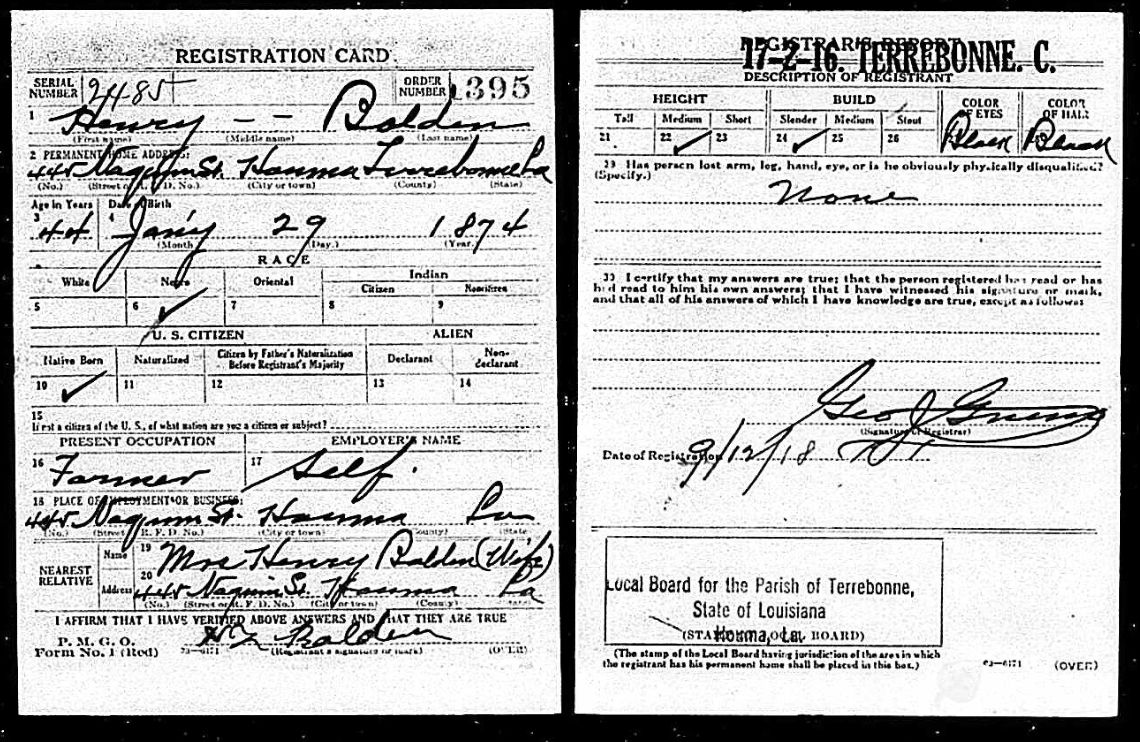 REGISTRATION CARD
SERIAL NUMBER 2485 ORDER NUMBER 395
1 Henry - - Balden
(First name) (Middle name) (Last name)
2 PERMANENT HOME ADDRESS:
445 Naquin St. Houma Terrebonne La
(No.) (Street or R. F. D. No.) (City or town) (County) (State)
Age in Years Date of Birth
3 44 4 Jan'y 29 1874
(Month) (Day.) (Year.)
RACE
White Negro Oriental Indian
Citizen Noncitizen
5 6 ✓ 7 8 9
U. S. CITIZEN ALIEN
Native Born Naturalized Citizen by Father's Naturalization Before Registrant's Majority Declarant Non-declarant
10 ✓ 11 12 13 14
15
If not a citizen of the U. S., of what nation are you a citizen or subject?
PRESENT OCCUPATION EMPLOYER'S NAME
16 Farmer 17 Self.
18 PLACE OF EMPLOYMENT OR BUSINESS:
445 Naquin St. Houma La
(No.) (Street or R. F. D. No.) (City or town) (County) (State)
NEAREST RELATIVE Name 19 Mrs Henry Balden (Wife)
Address 20 445 Naquin St. Houma La
(No.) (Street or R. F. D. No.) (City or town) (County) (State)
I AFFIRM THAT I HAVE VERIFIED ABOVE ANSWERS AND THAT THEY ARE TRUE
P. M. G. O.
Form No. 1 (Red) 03—6171 Balden
(Registrant's signature or mark) (OVER)
REGISTRAR'S REPORT
17-2-16. TERREBONNE. C.
DESCRIPTION OF REGISTRANT
HEIGHT BUILD COLOR OF EYES COLOR OF HAIR
Tall Medium Short Slender Medium Stout
21 22 ✓ 23 24 ✓ 25 26 Black Black
29 Has person lost arm, leg, hand, eye, or is he obviously physically disqualified?
(Specify.)
None
30 I certify that my answers are true; that the person registered has read or has
had read to him his own answers; that I have witnessed his signature or mark,
and that all of his answers of which I have knowledge are true, except as follows:
Geo J
(Signature of Registrar)
Date of Registration 9/12/18
Local Board for the Parish of Terrebonne,
State of Louisiana
Houma, La.
(STAMP OF LOCAL BOARD)
(The stamp of the Local Board having jurisdiction of the area in which
the registrant has his permanent home shall be placed in this box.)
03—6171 (OVER)